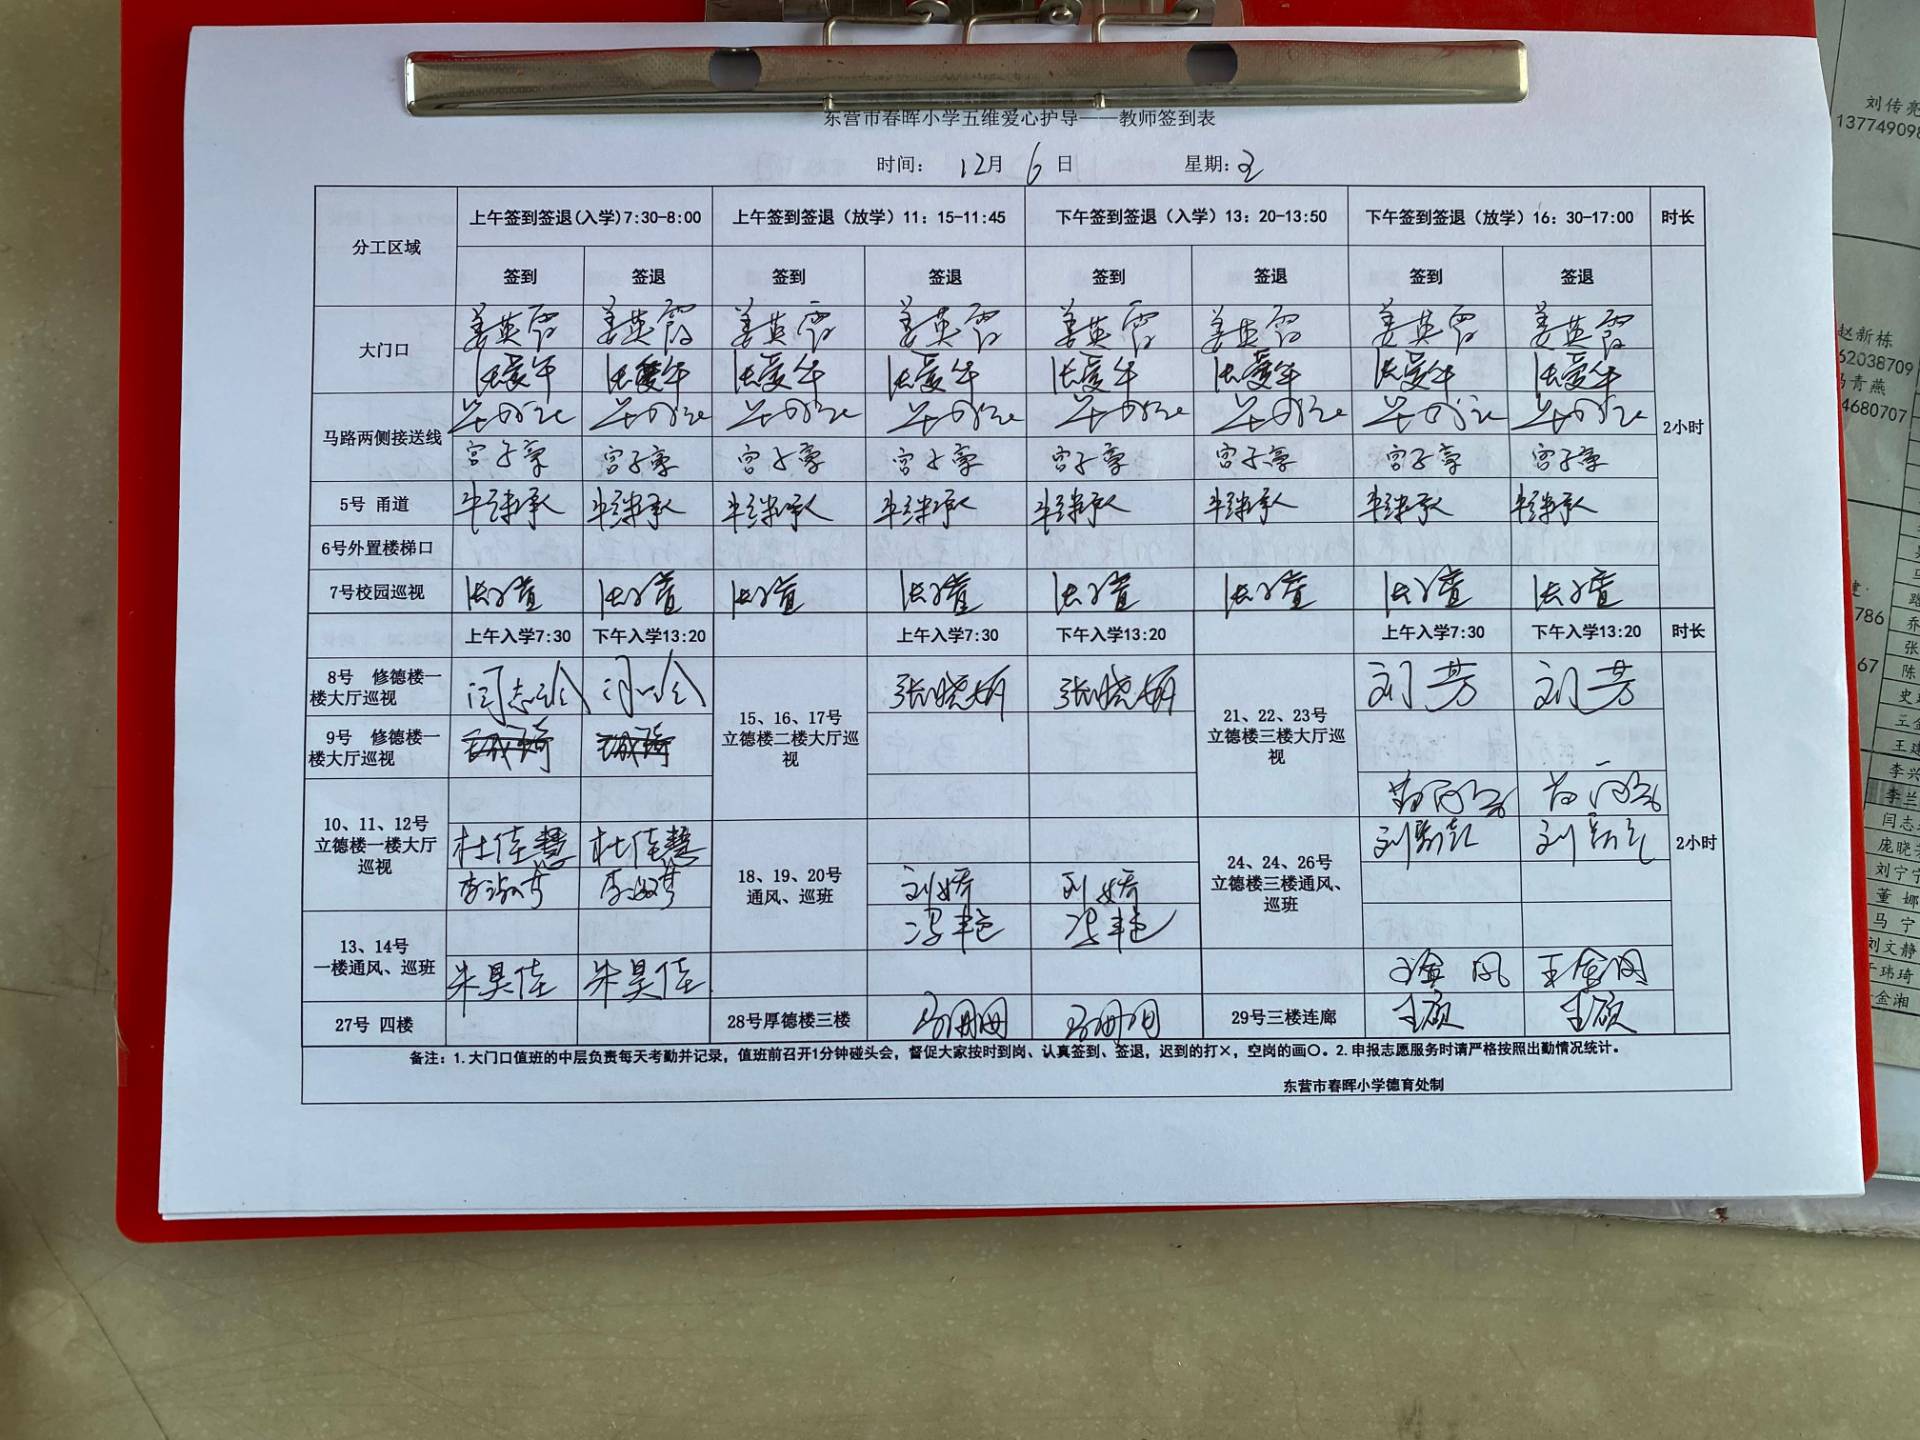 东营市春晖小学五维爱心护导——教师签到表
时间： 12月 6 日 星期：五
分工区域 上午签到签退(入学)7:30-8:00 上午签到签退（放学）11：15-11:45 下午签到签退（入学）13：20-13:50 下午签到签退（放学）16：30-17:00 时长
签到 签退 签到 签退 签到 签退 签到 签退
大门口 姜英霞 姜英霞 姜英霞 姜英霞 姜英霞 姜英霞 姜英霞 姜英霞
张爱华 张爱华 张爱华 张爱华 张爱华 张爱华 张爱华 张爱华
马路两侧接送线 2小时
宫子豪 宫子豪 宫子豪 宫子豪 宫子豪 宫子豪 宫子豪 宫子豪
5号 甬道 牛继承 牛继承 牛继承 牛继承 牛继承 牛继承 牛继承 牛继承
6号外置楼梯口
7号校园巡视 张子萱 张子萱 张子萱 张子萱 张子萱 张子萱 张子萱 张子萱
上午入学7:30 下午入学13:20 上午入学7:30 下午入学13:20 上午入学7:30 下午入学13:20 时长
8号 修德楼一楼大厅巡视 闫志玲 闫志玲
9号 修德楼一楼大厅巡视
10、11、12号
立德楼一楼大厅
巡视
杜佳慧 杜佳慧
13、14号
一楼通风、巡班
朱昊佳 朱昊佳
27号 四楼
15、16、17号
立德楼二楼大厅巡
视
张晓妍 张晓妍
18、19、20号
通风、巡班
刘娇 刘娇
冯艳 冯艳
28号厚德楼三楼 马珊珊 马珊珊
21、22、23号
立德楼三楼大厅巡
视
刘芳 刘芳
24、24、26号
立德楼三楼通风、
巡班
王金凤 王金凤
29号三楼连廊 王硕 王硕
2小时
备注：1.大门口值班的中层负责每天考勤并记录，值班前召开1分钟碰头会，督促大家按时到岗、认真签到、签退，迟到的打×，空岗的画〇。2.申报志愿服务时请严格按照出勤情况统计。
东营市春晖小学德育处制
刘传亮
137749098
赵新栋
62038709
马青燕
4680707
786
67
李兰
刘宁宁
董娜
马宁
刘文静
金湘